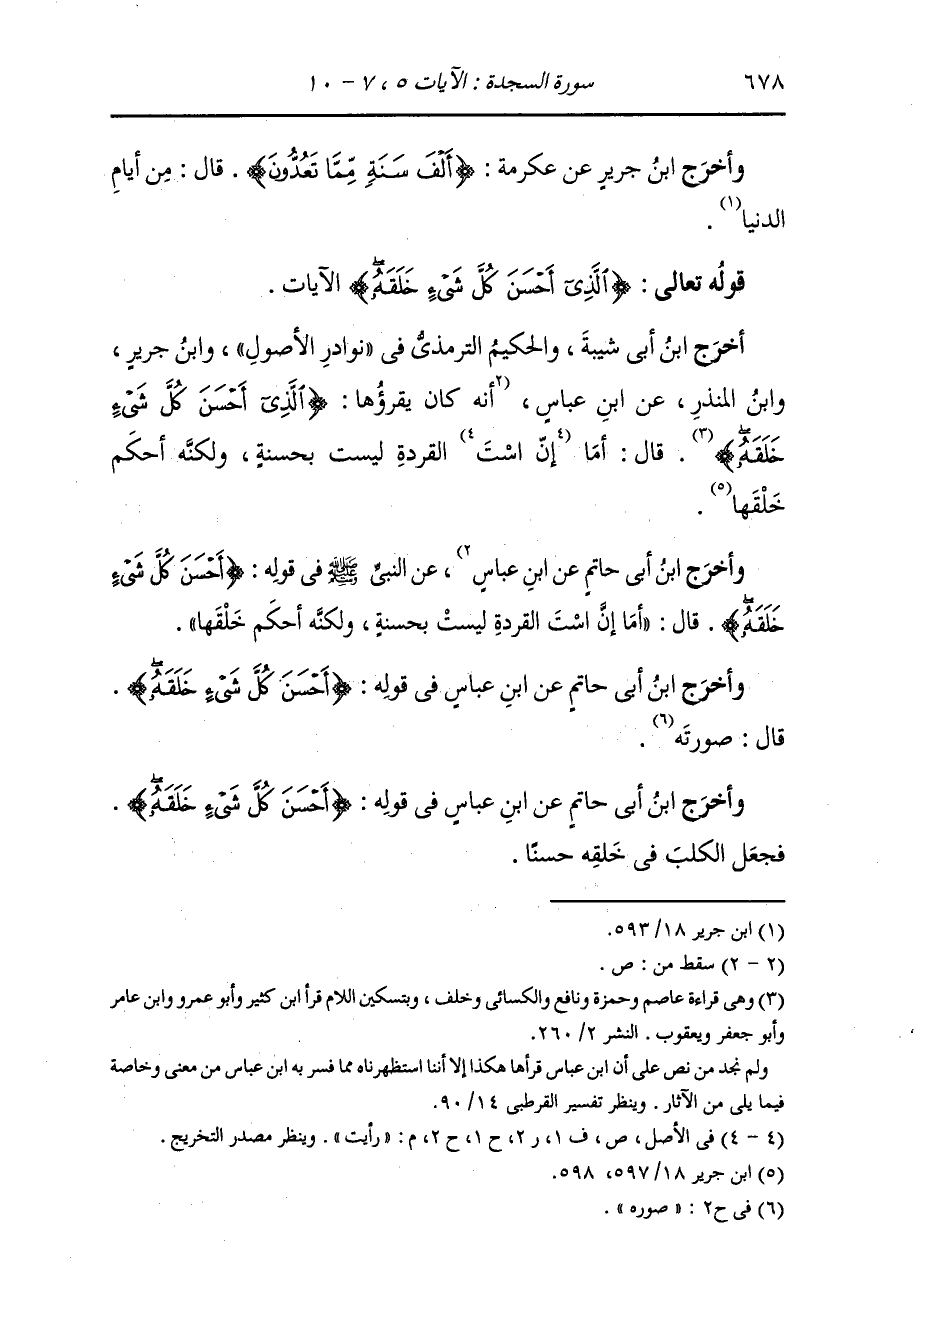 ٦٧٨ سورة السجدة : الآيات ٥ ، ٧ - ١٠
وأخرَج ابنُ جريرٍ عن عكرمة : ﴿أَلْفَ سَنَةٍ مِّمَّا تَعُدُّونَ﴾ . قال : مِن أيامِ
الدنيا(١) .
قولُه تعالى : ﴿ٱلَّذِىٓ أَحْسَنَ كُلَّ شَىْءٍ خَلَقَهُۥۖ﴾ الآيات .
أخرَج ابنُ أبى شيبةَ ، والحكيمُ الترمذىُّ فى «نوادرِ الأصولِ» ، وابنُ جريرٍ ،
وابنُ المنذرِ ، عن ابنِ عباسٍ ، (٢أنه كان يقرؤُها : ﴿ٱلَّذِىٓ أَحْسَنَ كُلَّ شَىْءٍ
خَلَقَهُۥۖ﴾(٣) . قال : أمَا (٤إنّ اسْتَ٤) القردةِ ليست بحسنةٍ ، ولكنَّه أحكَم
خَلْقَها(٥) .
وأخرَج ابنُ أبى حاتمٍ عن ابنِ عباسٍ٢) ، عن النبىِّ ﷺ فى قولِه : ﴿أَحْسَنَ كُلَّ شَىْءٍ
خَلَقَهُۥۖ﴾ . قال : «أمَا إنَّ اسْتَ القردةِ ليستْ بحسنةٍ ، ولكنَّه أحكَم خَلْقَها» .
وأخرَج ابنُ أبى حاتمٍ عن ابنِ عباسٍ فى قولِه : ﴿أَحْسَنَ كُلَّ شَىْءٍ خَلَقَهُۥۖ﴾ .
قال : صورتَه(٦) .
وأخرَج ابنُ أبى حاتمٍ عن ابنِ عباسٍ فى قولِه : ﴿أَحْسَنَ كُلَّ شَىْءٍ خَلَقَهُۥۖ﴾ .
فجعَل الكلبَ فى خَلقِه حسنًا .
(١) ابن جرير ١٨/ ٥٩٣.
(٢ - ٢) سقط من : ص .
(٣) وهى قراءة عاصم وحمزة ونافع والكسائى وخلف ، وبتسكين اللام قرأ ابن كثير وأبو عمرو وابن عامر
وأبو جعفر ويعقوب . النشر ٢/ ٢٦٠.
ولم نجد من نص على أن ابن عباس قرأها هكذا إلا أننا استظهرناه مما فسر به ابن عباس من معنى وخاصة
فيما يلى من الآثار . وينظر تفسير القرطبى ١٤/ ٩٠.
(٤ - ٤) فى الأصل ، ص ، ف ١، ر ٢، ح ١، ح ٢، م : «رأيت» . وينظر مصدر التخريج .
(٥) ابن جرير ١٨/ ٥٩٧، ٥٩٨.
(٦) فى ح٢ : «صوره» .